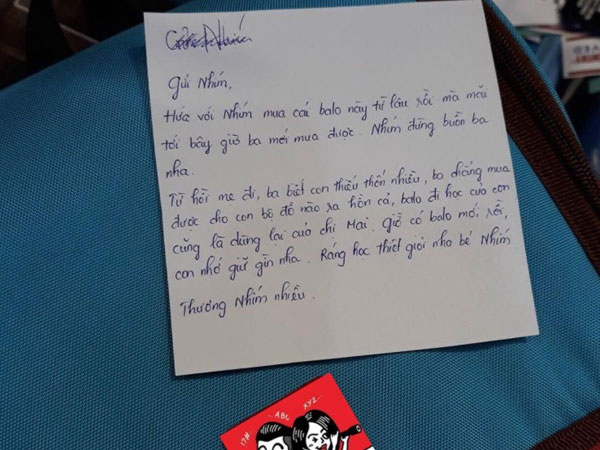 Gửi Nhím,
Hứa với Nhím mua cái balo này từ lâu rồi mà mãi
tới bây giờ ba mới mua được. Nhím đừng buồn ba
nha.
Từ hồi mẹ đi, ba biết con thiếu thốn nhiều, ba chẳng mua
được cho con bộ đồ nào ra hồn cả, balo đi học của con
cũng là dùng lại của chị Mai. Giờ có balo mới rồi,
con nhớ giữ gìn nha. Ráng học thiệt giỏi nha bé Nhím.
Thương Nhím nhiều.
ABC
XYZ